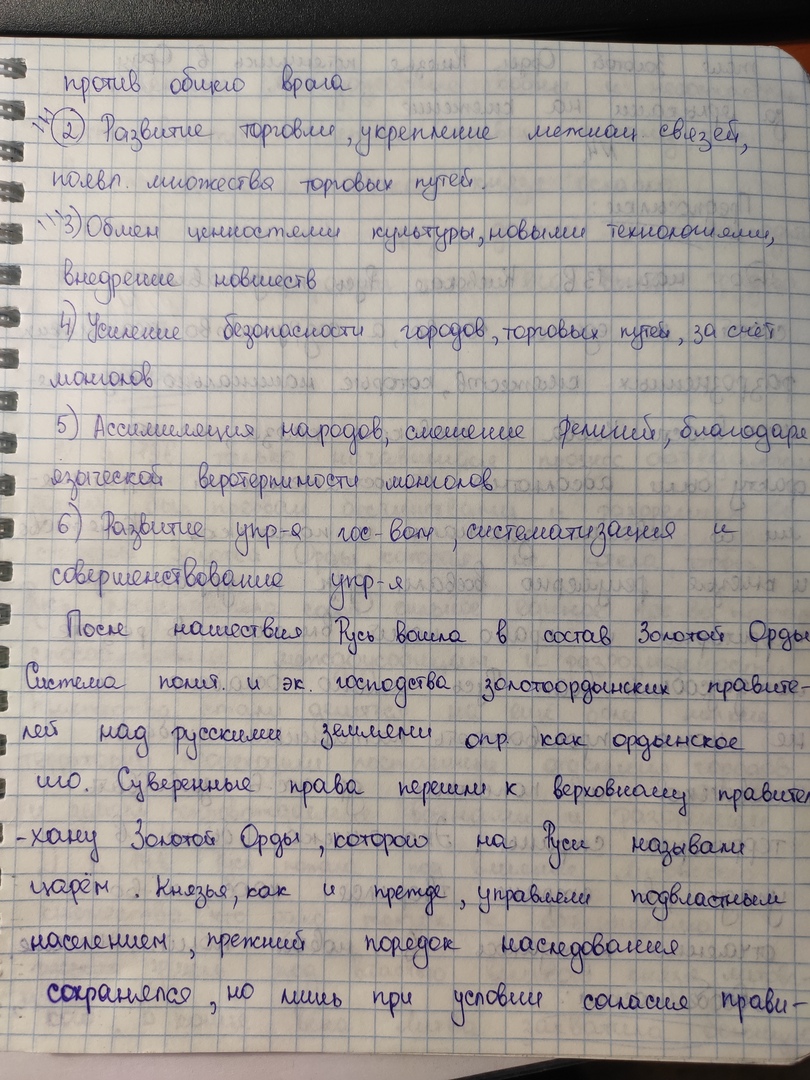 против общего врага
2) Развитие торговли, укрепление межнац связей,
появл. множества торговых путей.
3) Обмен ценностями культуры, новыми технологиями,
внедрение новшеств
4) Усиление безопасности городов, торговых путей, за счёт
монголов
5) Ассимиляция народов, смешение религий, благодаря
языческой веротерпимости монголов
6) Развитие упр-я гос-вом, систематизация и
совершенствование упр-я
После нашествия Русь вошла в состав Золотой Орды
Система полит. и эк. господства золотоордынских правите-
лей над русскими землями опр. как ордынское
иго. Суверенные права перешли к верховному правител
-хану Золотой Орды, которого на Руси называли
царём. Князья, как и прежде, управляли подвластным
населением, прежний порядок наследования
сохранялся, но лишь при условии согласия прави-